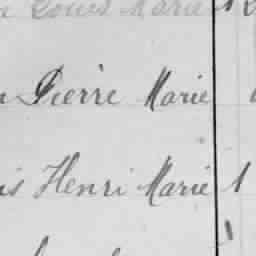 Louis Marie
Pierre Marie
is Henri Marie 1